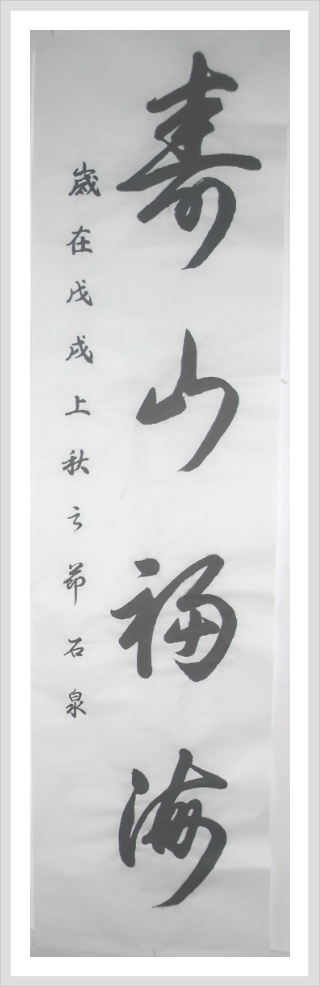 寿山福海
歲在戊戌上秋之節石泉